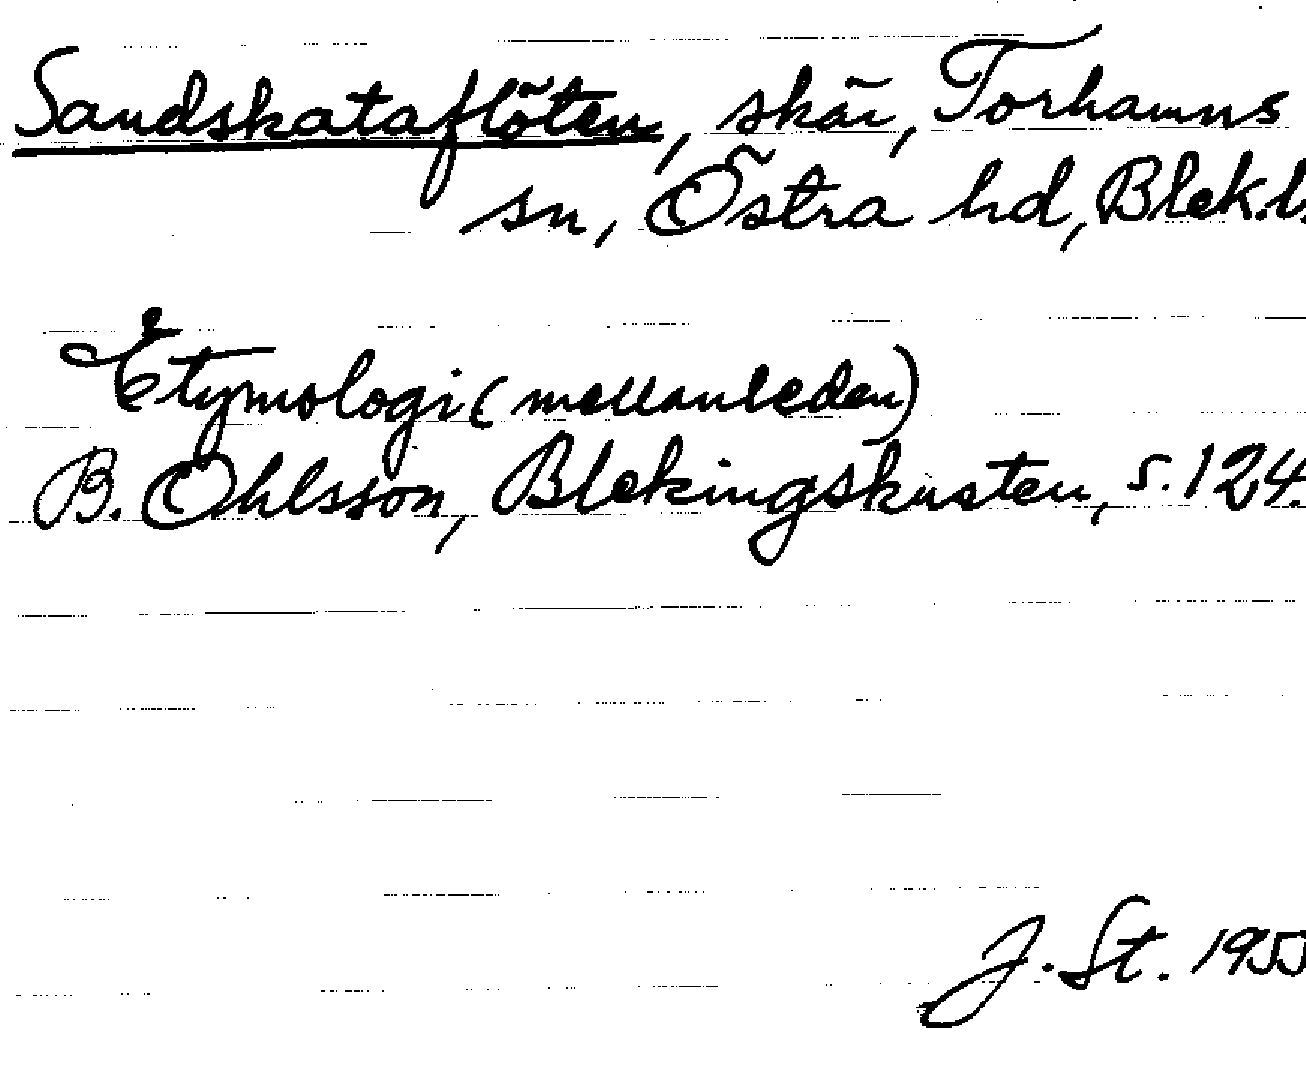 Sandskataflöten, skär, Torhamns
sn, Östra hd, Blek.l.
Etymologi (mellanleden)
B. Ohlsson, Blekingskusten, s. 124.
J. St. 1955